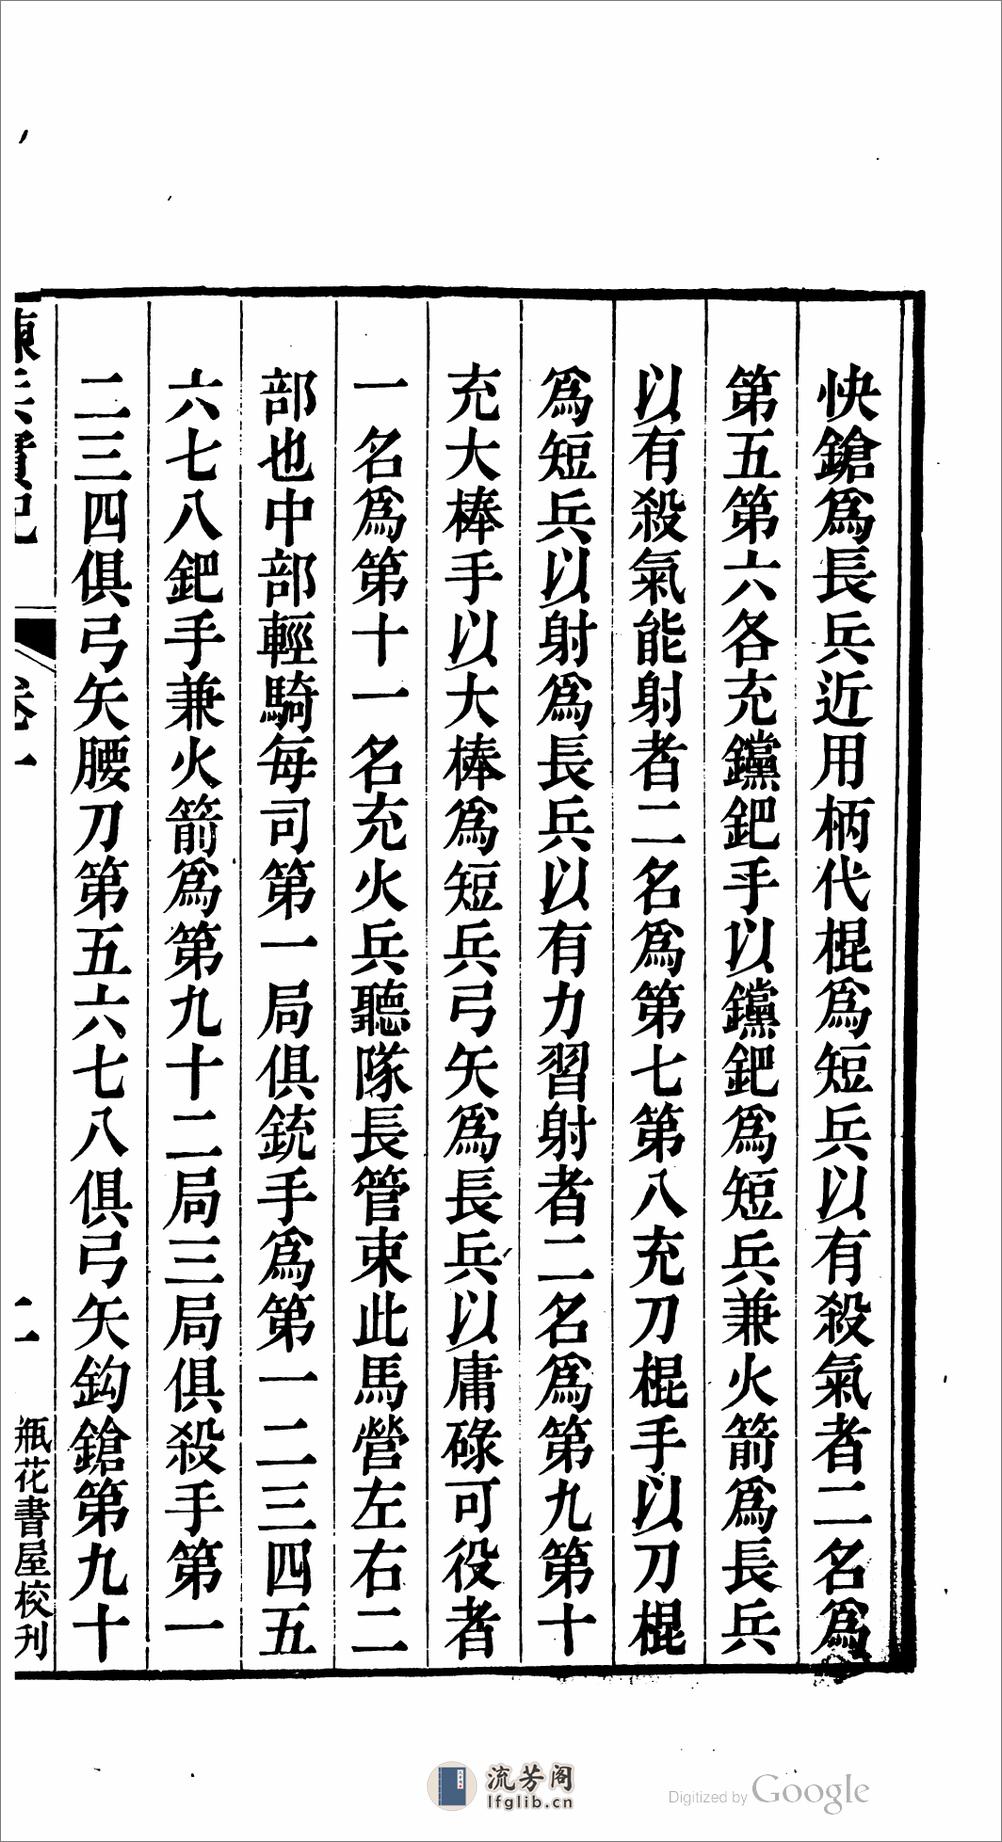 快鎗爲長兵近用柄代棍爲短兵以有殺氣者二名爲
第五第六各充钂鈀手以钂鈀爲短兵兼火箭爲長兵
以有殺氣能射者二名爲第七第八充刀棍手以刀棍
爲短兵以射爲長兵以有力習射者二名爲第九第十
充大棒手以大棒爲短兵弓矢爲長兵以庸碌可役者
一名爲第十一名充火兵聽隊長管束此馬營左右二
部也中部輕騎每司第一局俱銃手爲第一二三四五
六七八鈀手兼火箭爲第九十二局三局俱殺手第一
二三四俱弓矢腰刀第五六七八俱弓矢鈎鎗第九十
練兵實紀 卷一 二 瓶花書屋校刊
流芳阁
lfglib.cn
Digitized by Google